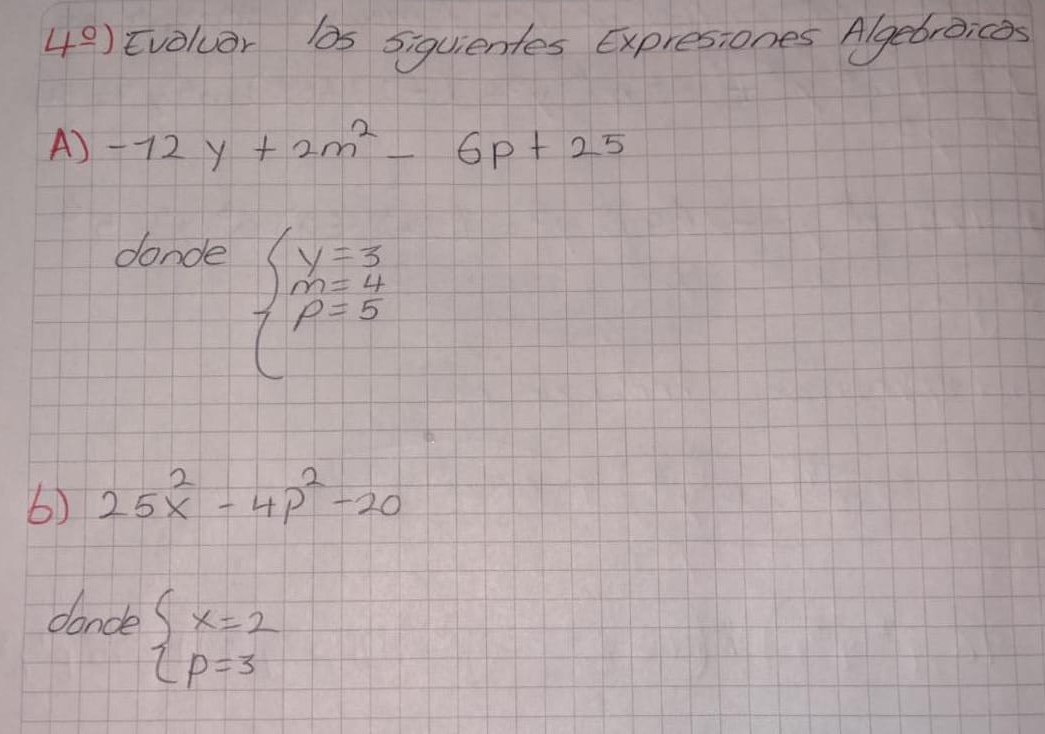 4º) Evaluar las siguientes Expresiones Algebraicas
A) -12 y + 2m² - 6p + 25
donde { y = 3
m = 4
p = 5
b) 25x² - 4p² - 20
donde { x = 2
p = 3